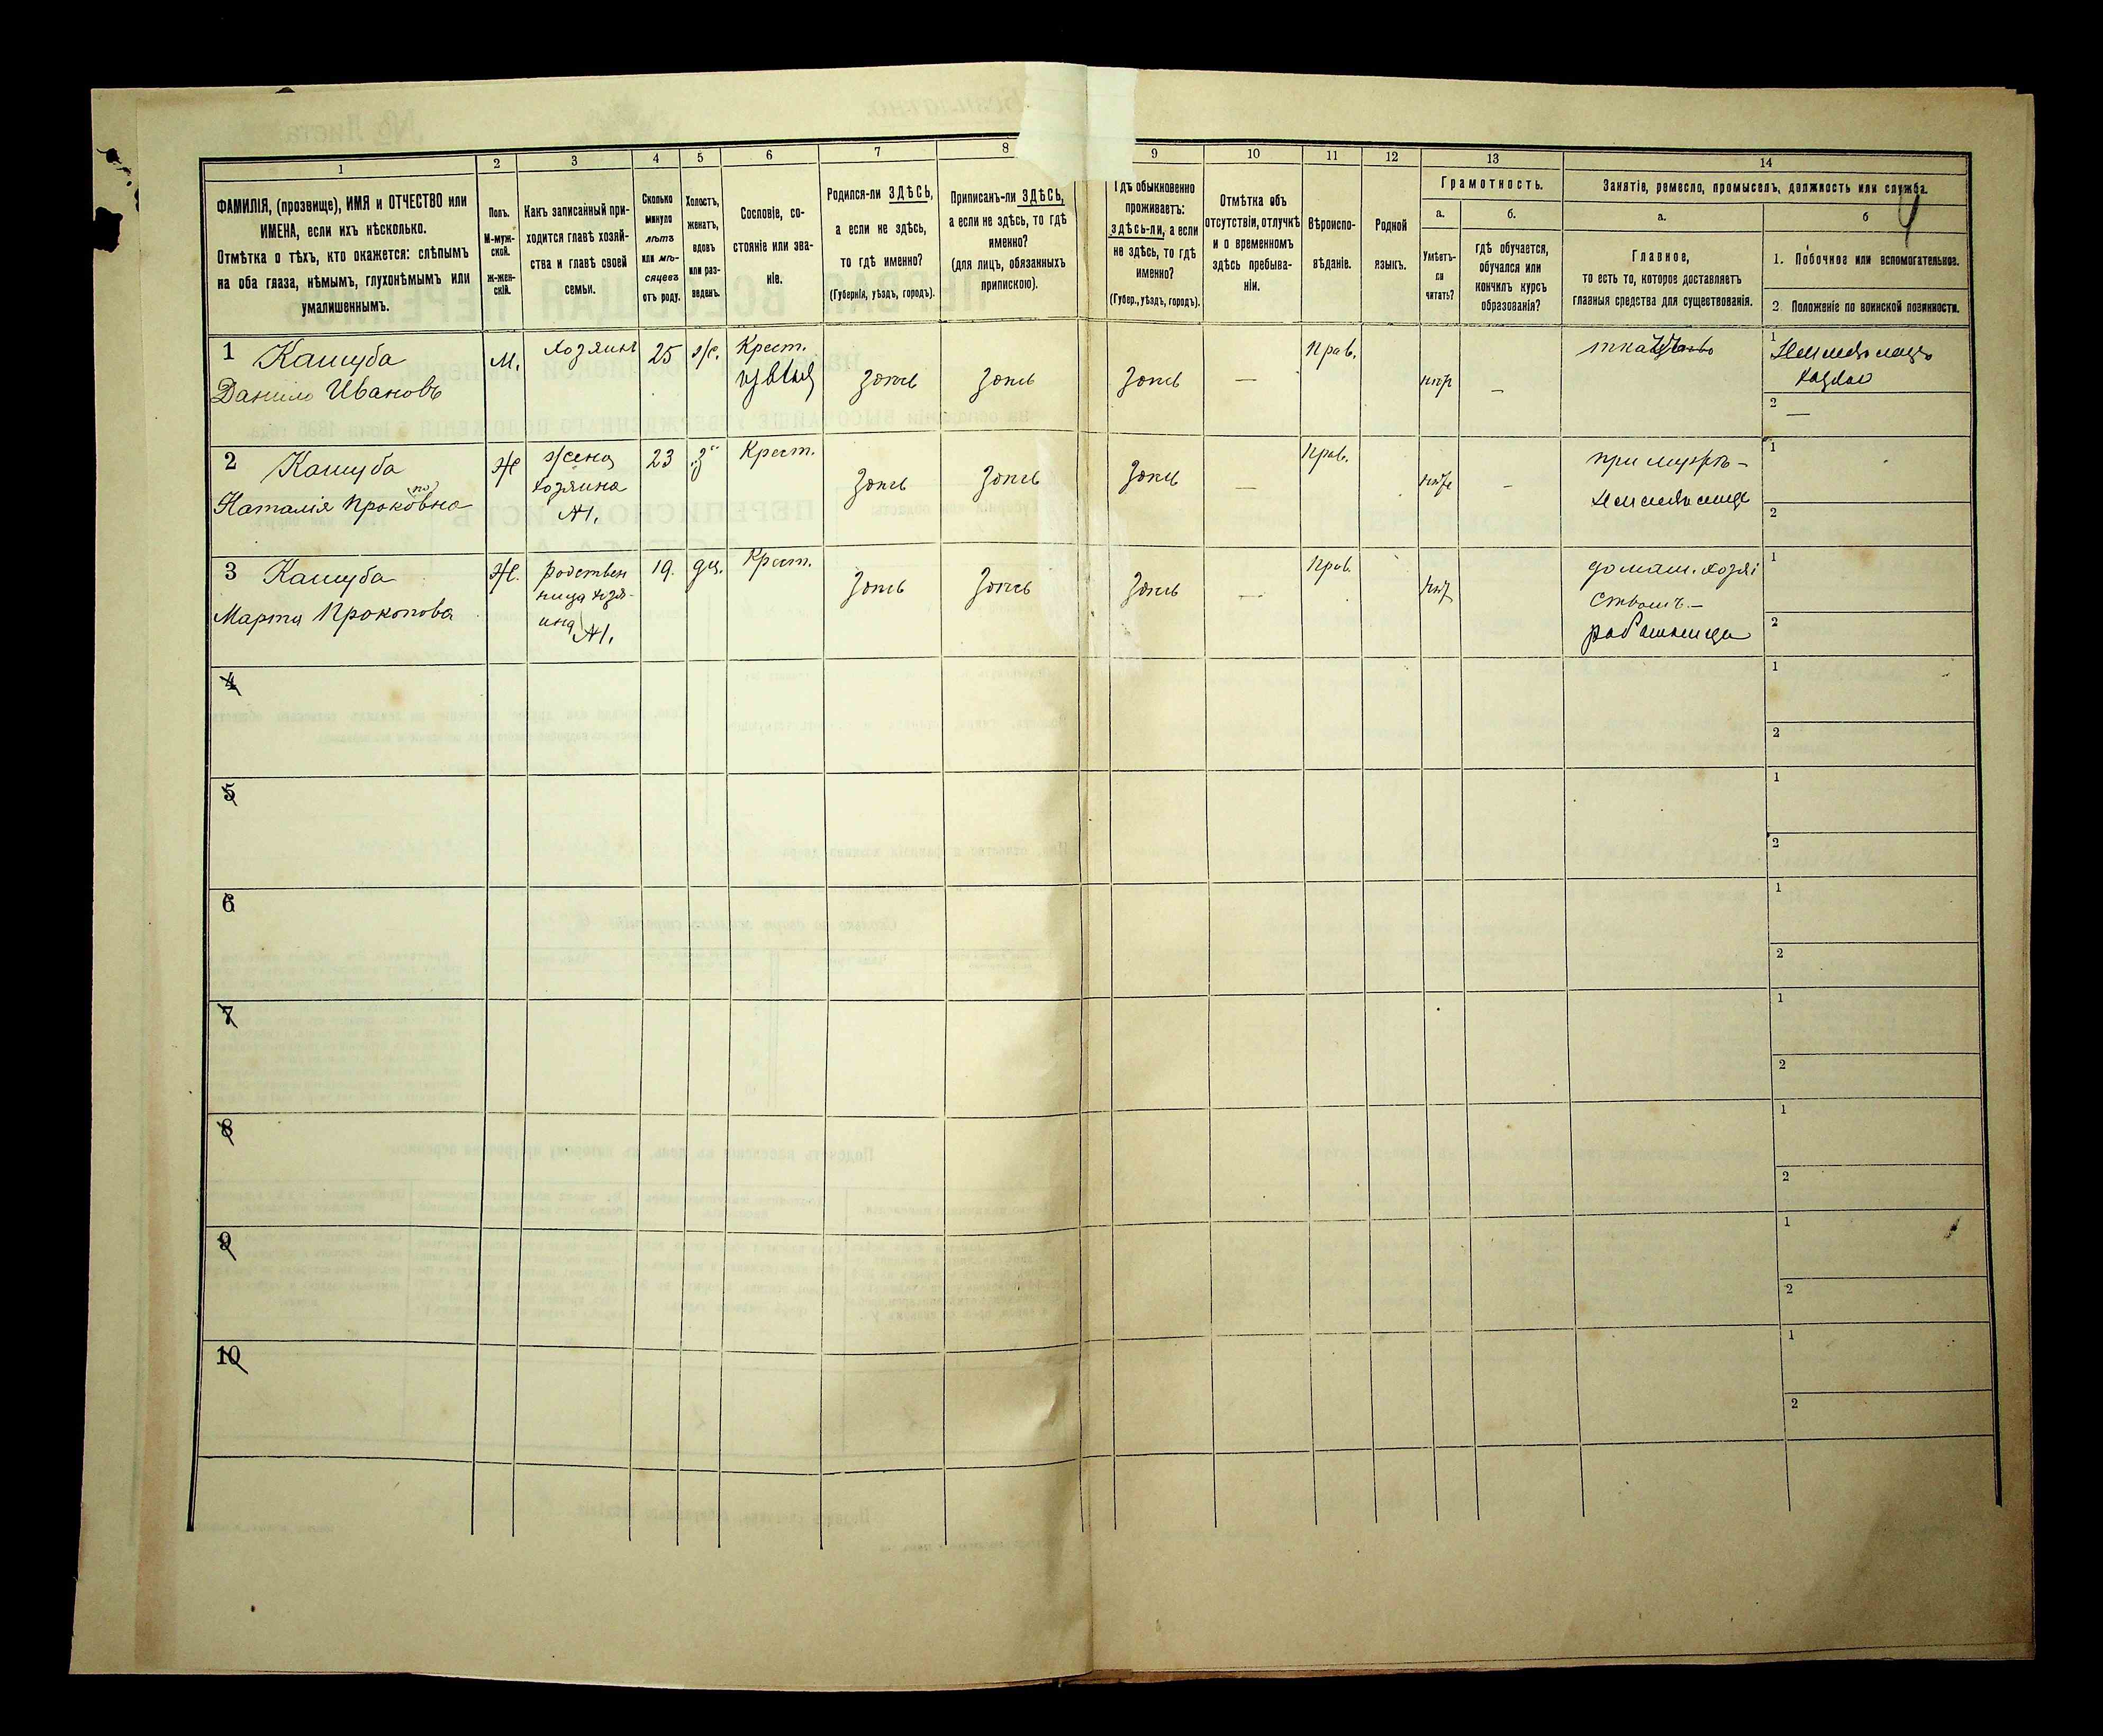 1
2
3
4
5
6
7
8
9
10
11
12
13
14
ФАМИЛІЯ, (прозвище), ИМЯ и ОТЧЕСТВО или
ИМЕНА, если ихъ нѣсколько.
Отмѣтка о тѣхъ, кто окажется: слѣпымъ
на оба глаза, нѣмымъ, глухонѣмымъ или
умалишеннымъ.
Полъ.
М-муж-
ской.
ж-жен-
скій.
Какъ записанный при-
ходится главѣ хозяй-
ства и главѣ своей
семьи.
Сколько
минуло
лѣтъ
или мѣ-
сяцевъ
отъ роду.
Холостъ,
женатъ,
вдовъ
или раз-
веденъ.
Сословіе, со-
стояніе или зва-
ніе.
Родился-ли ЗДѢСЬ,
а если не здѣсь,
то гдѣ именно?
(Губернія, уѣздъ, городъ).
Приписанъ-ли ЗДѢСЬ,
а если не здѣсь, то гдѣ
именно?
(для лицъ, обязанныхъ
припискою).
Гдѣ обыкновенно
проживаетъ:
здѣсь-ли, а если
не здѣсь, то гдѣ
именно?
(Губер., уѣздъ, городъ).
Отмѣтка объ
отсутствіи, отлучкѣ
и о временномъ
здѣсь пребыва-
ніи.
Вѣроиспо-
вѣданіе.
Родной
языкъ.
Грамотность.
а.
б.
Умѣетъ-
ли
читать?
гдѣ обучается,
обучался или
кончилъ курсъ
образованія?
Занятіе, ремесло, промыселъ, должность или служба.
а.
б
Главное,
то есть то, которое доставляетъ
главныя средства для существованія.
1. Побочное или вспомогательное.
2. Положеніе по воинской повинности.
1 Кашуба
Данило Ивановъ
М.
хозяинъ
25
ж.
Крест.
здѣсь
здѣсь
здѣсь
—
Прав.
—
1
2 —
2 Кашуба
Наталія Прокоповна
Ж
жена
хозяина
№1.
23
з
Крест.
здѣсь
здѣсь
здѣсь
—
Прав.
-
при мужѣ -
1
2
3 Кашуба
Марта Прокопова
Ж.
родствен
ница хозя-
ина №1.
19.
дѣ.
Крест.
здѣсь
здѣсь
здѣсь
—
Прав.
домаш. хозяй
ствомъ. -
работница
1
2
4
1
2
5
1
2
6
1
2
7
1
2
8
1
2
9
1
2
10
1
2